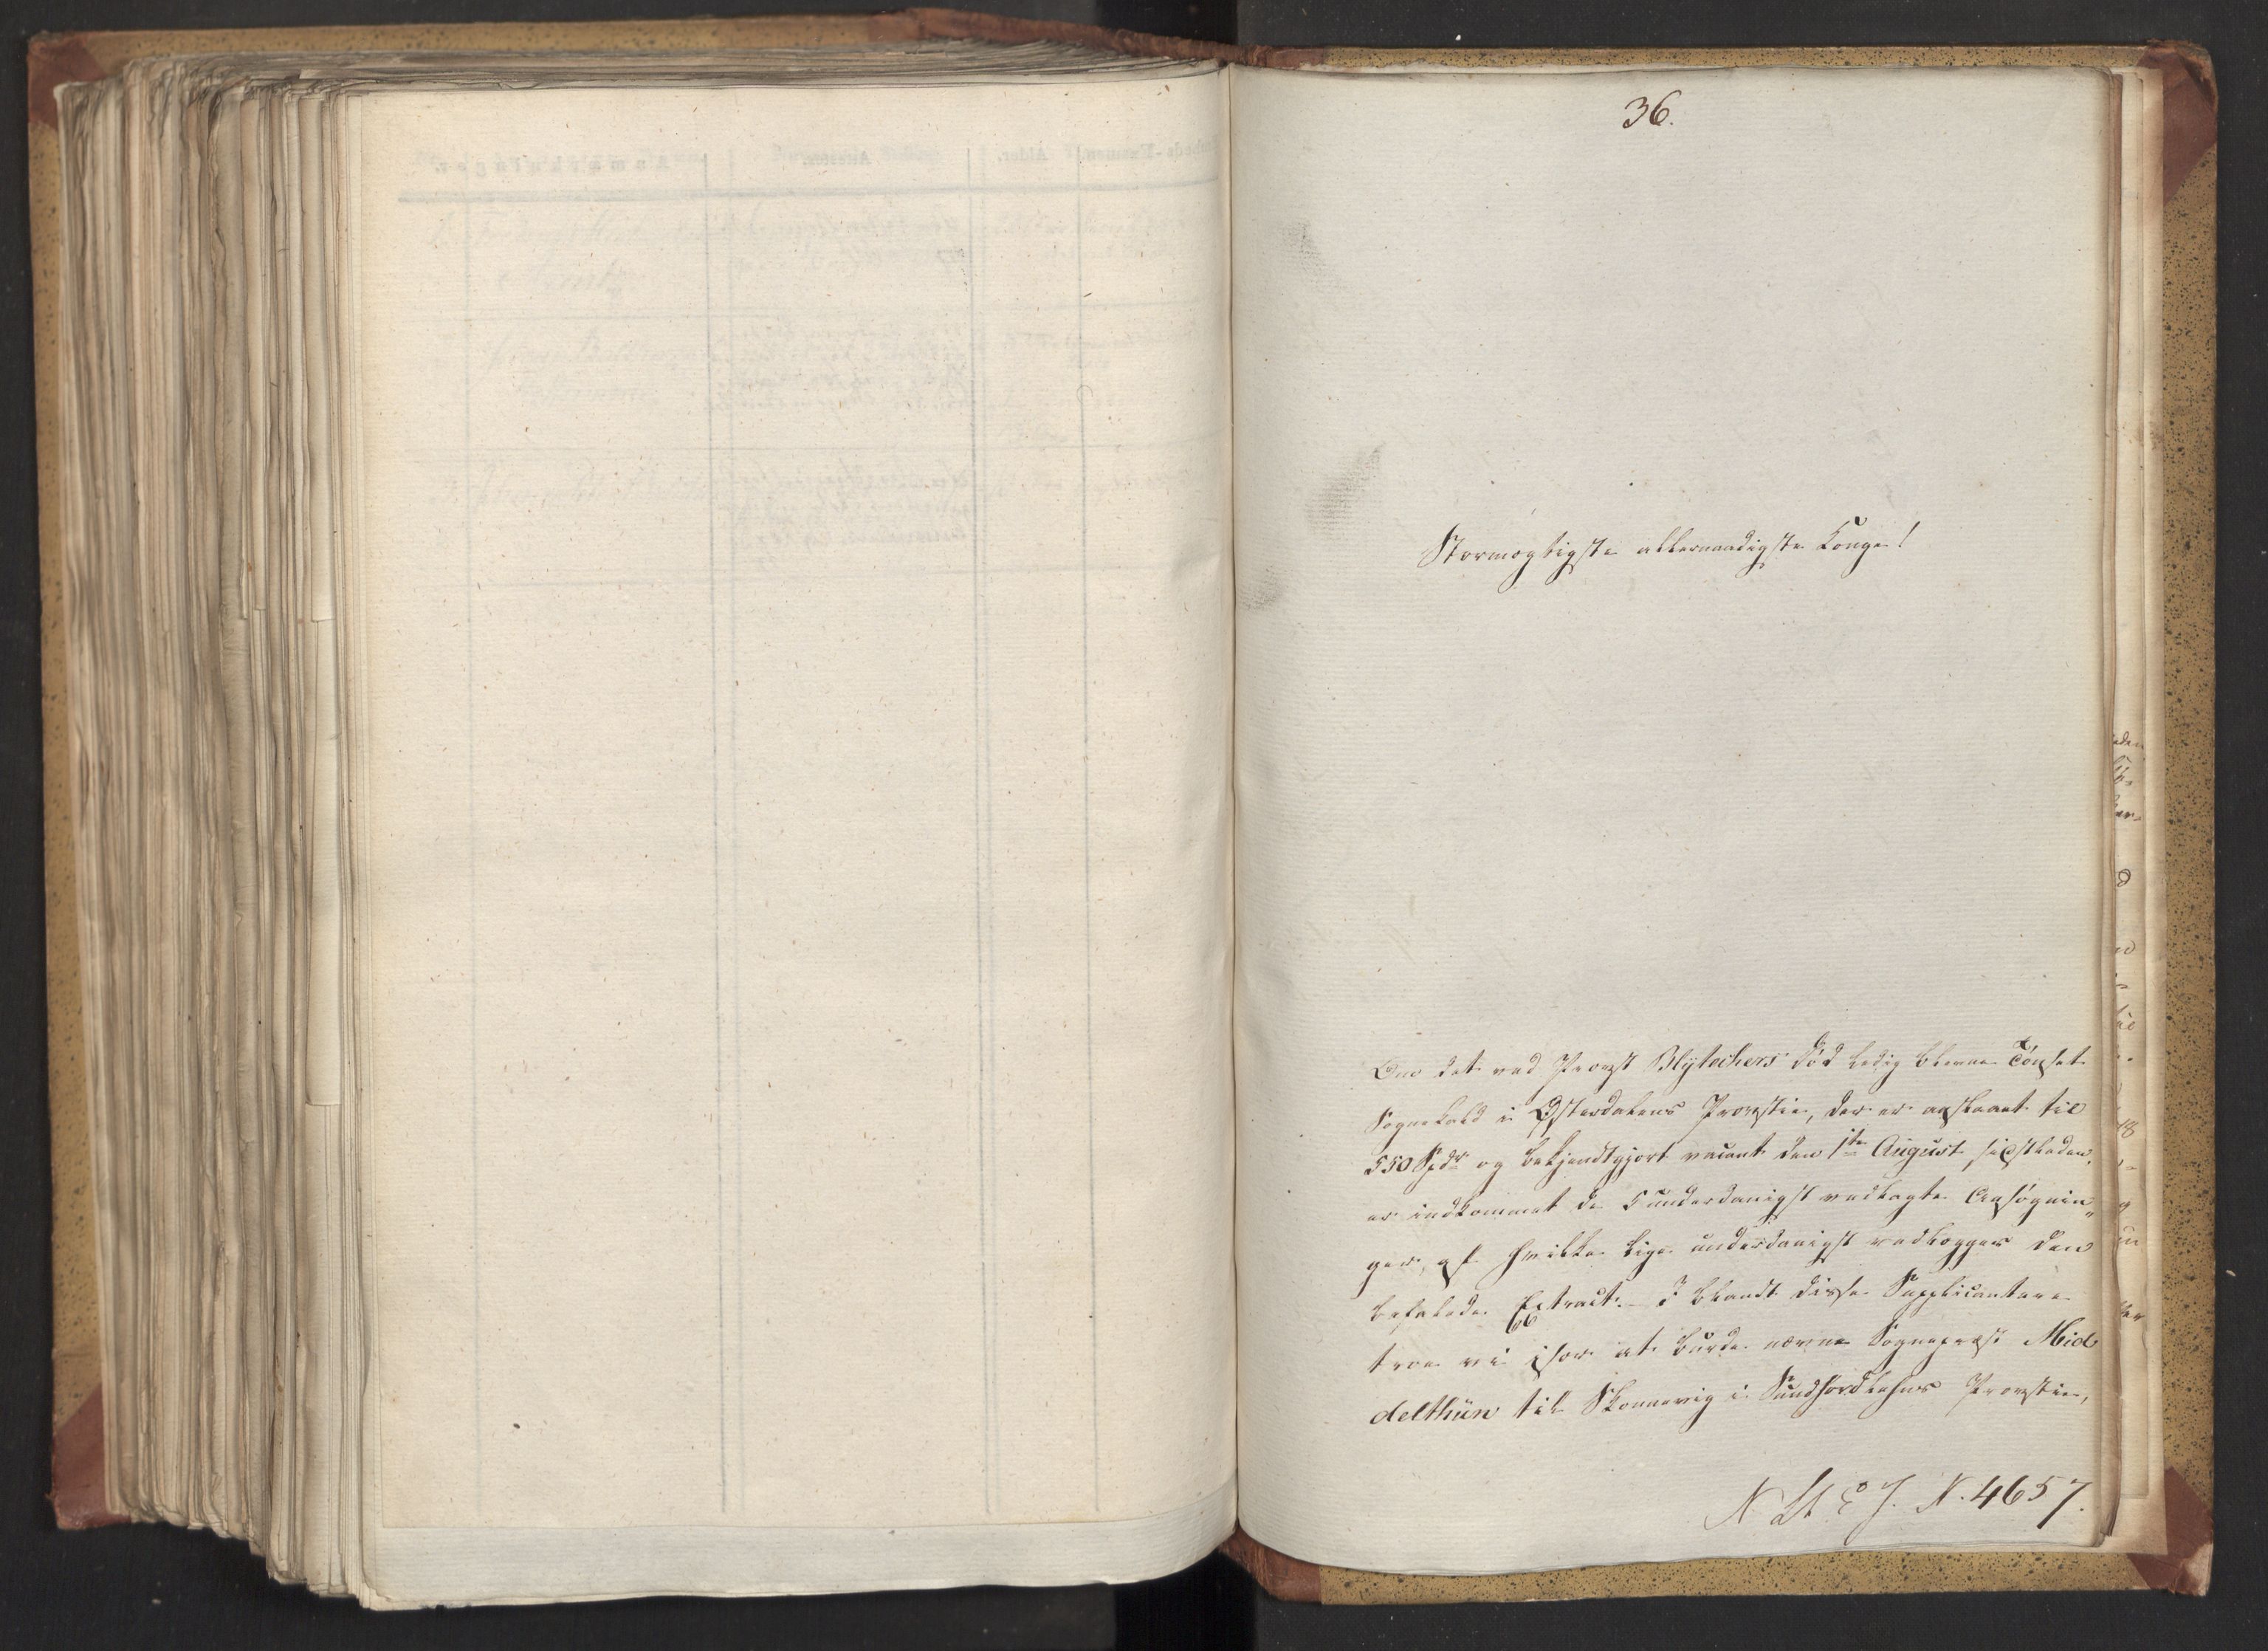 36.
Stormægtigste allernaadigste Konge!
Om det ved Provst Blytechers Død ledig blevne Tönset
Sognekald i Østerdalens Provstie, der er anslaaet til
550 Spdr og bekjendtgjort vacant den 1ste August sidstleden,
er indkommet de 5 underdanigst vedlagte Ansøgnin„
ger, af hvilke lige underdanigst vedlægges den
befalede Extract. - I blandt disse Supplicantere
troe vi især at burde nævne Sognepræst Mid
delthün til Skonnevig i Sundhordlehns Provstie,
N. 4657.